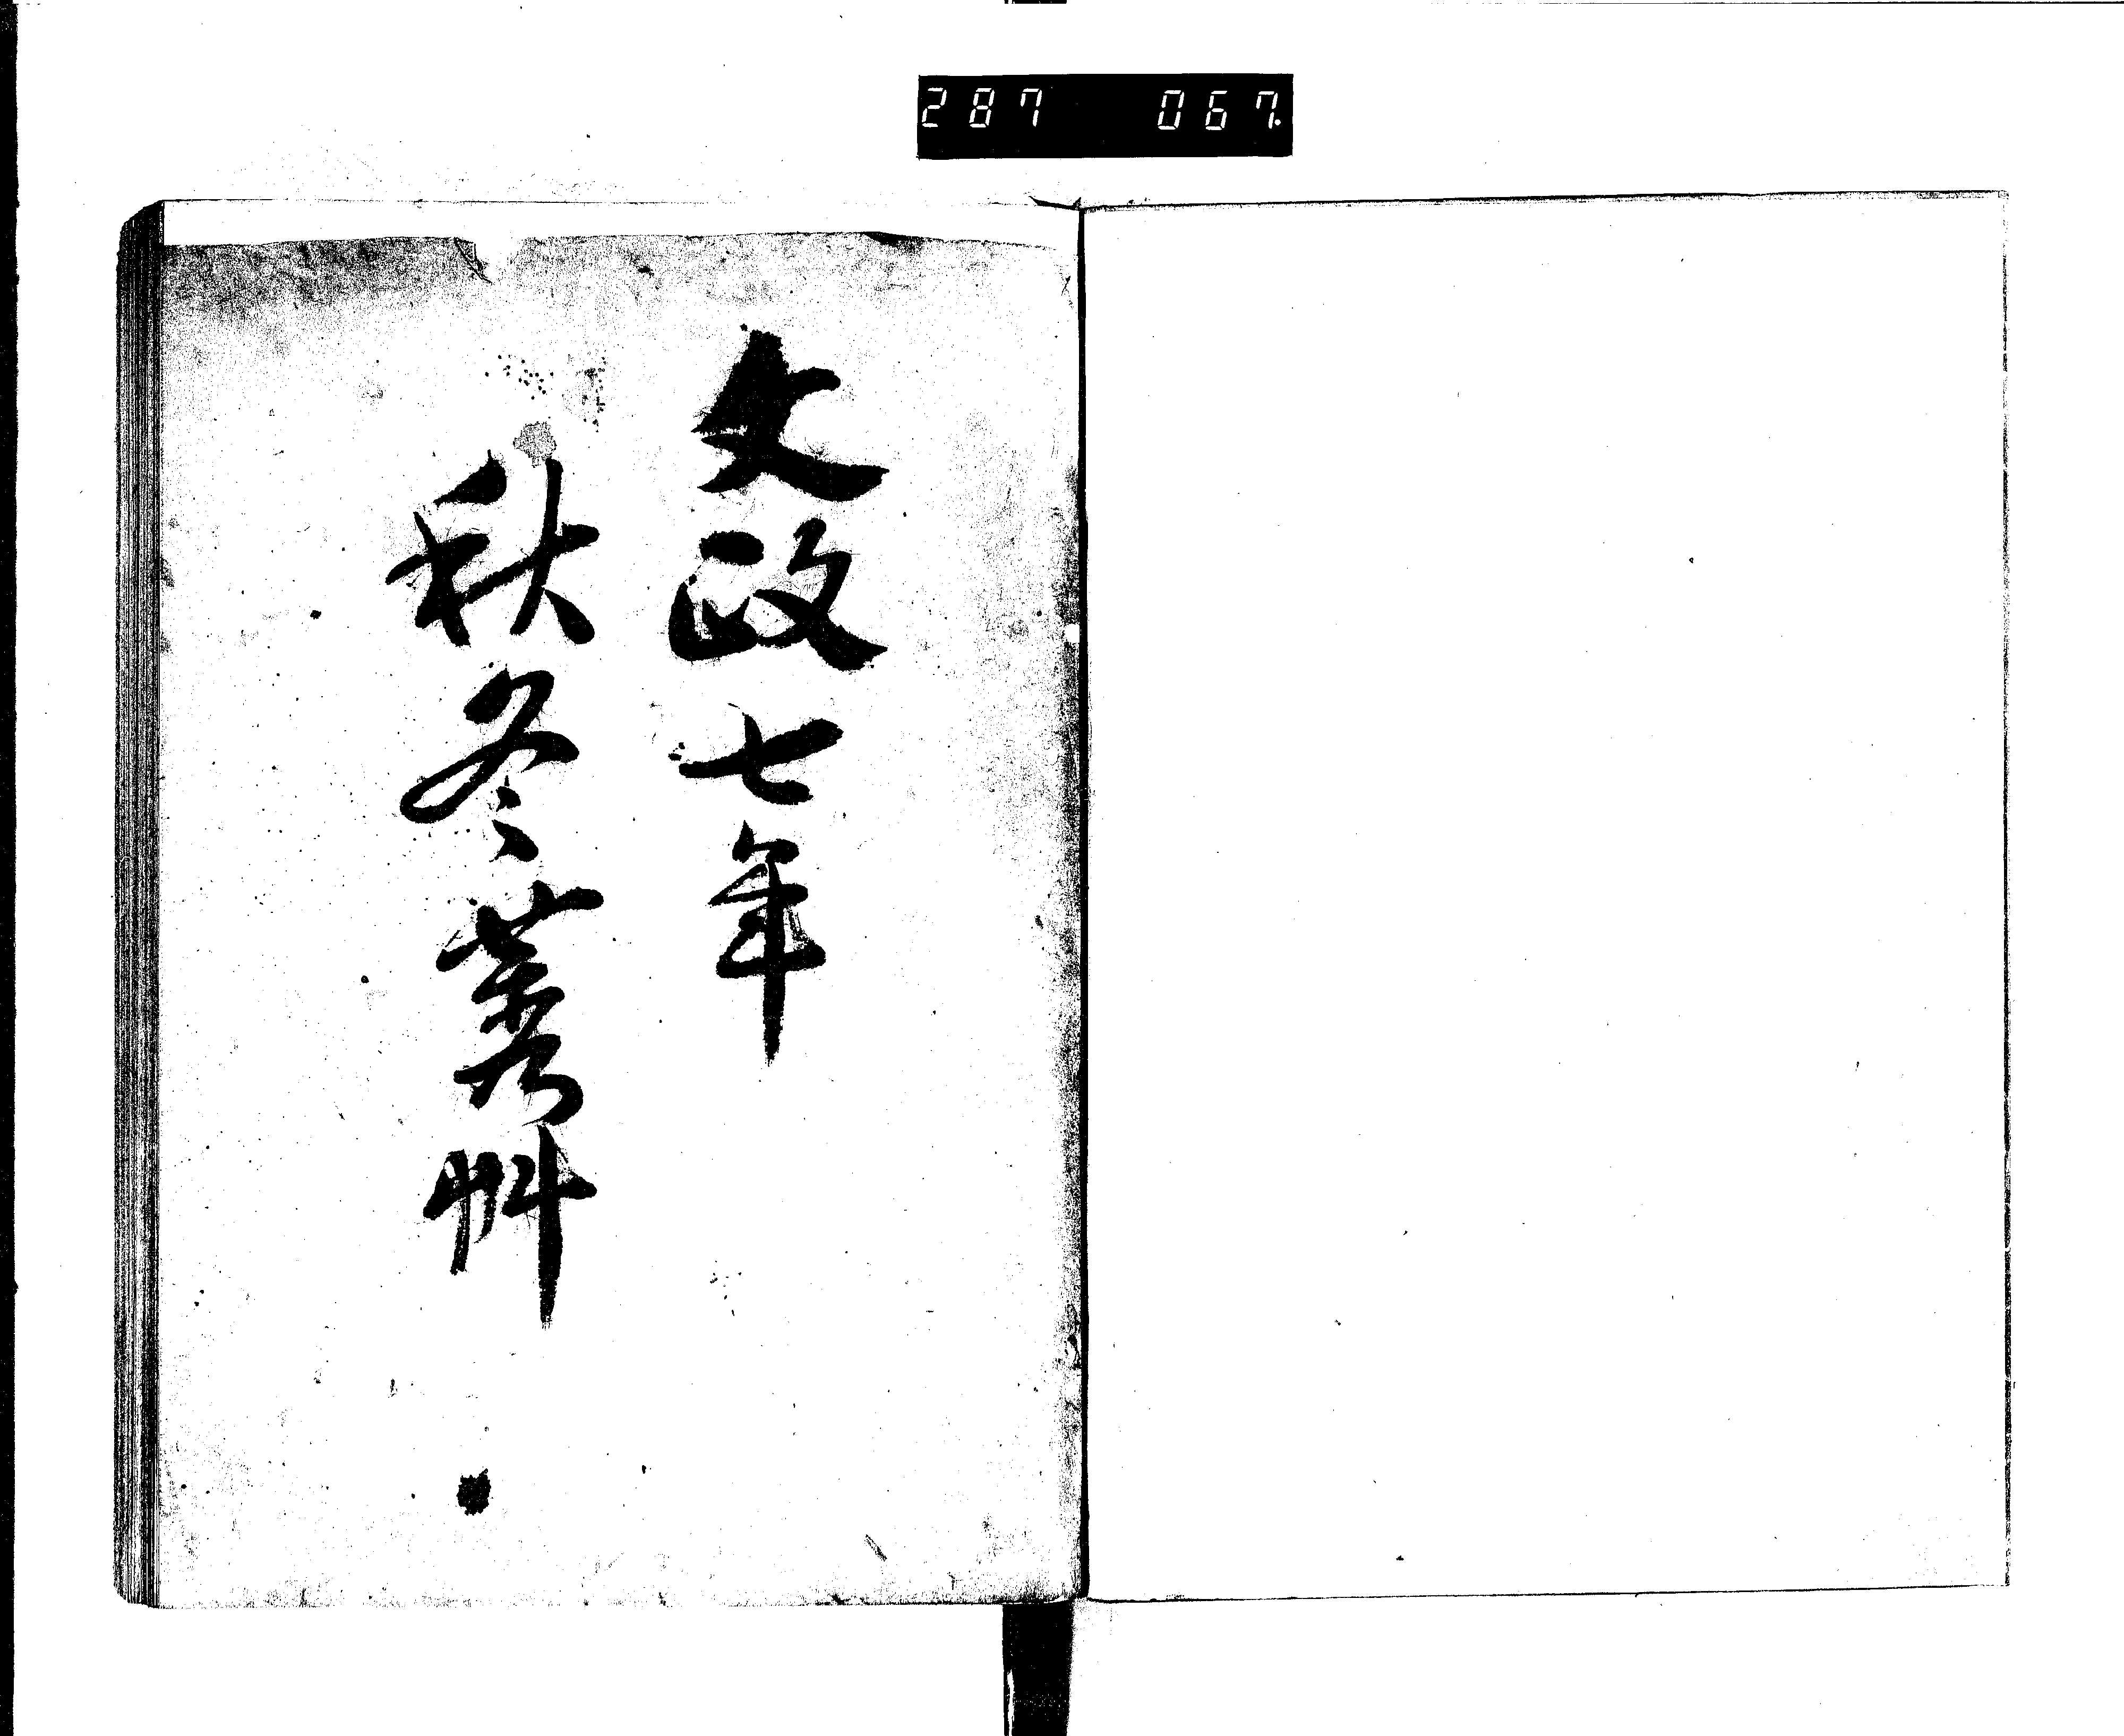 287 067.
文政七年
秋冬藁艸